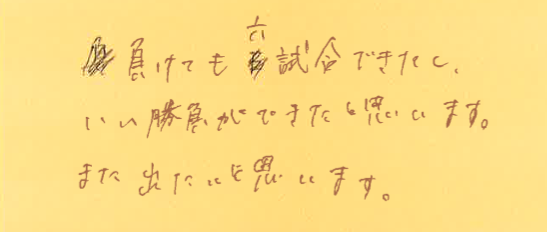 負けても六試合できたし、
いい勝負ができたと思います。
また出たいと思います。